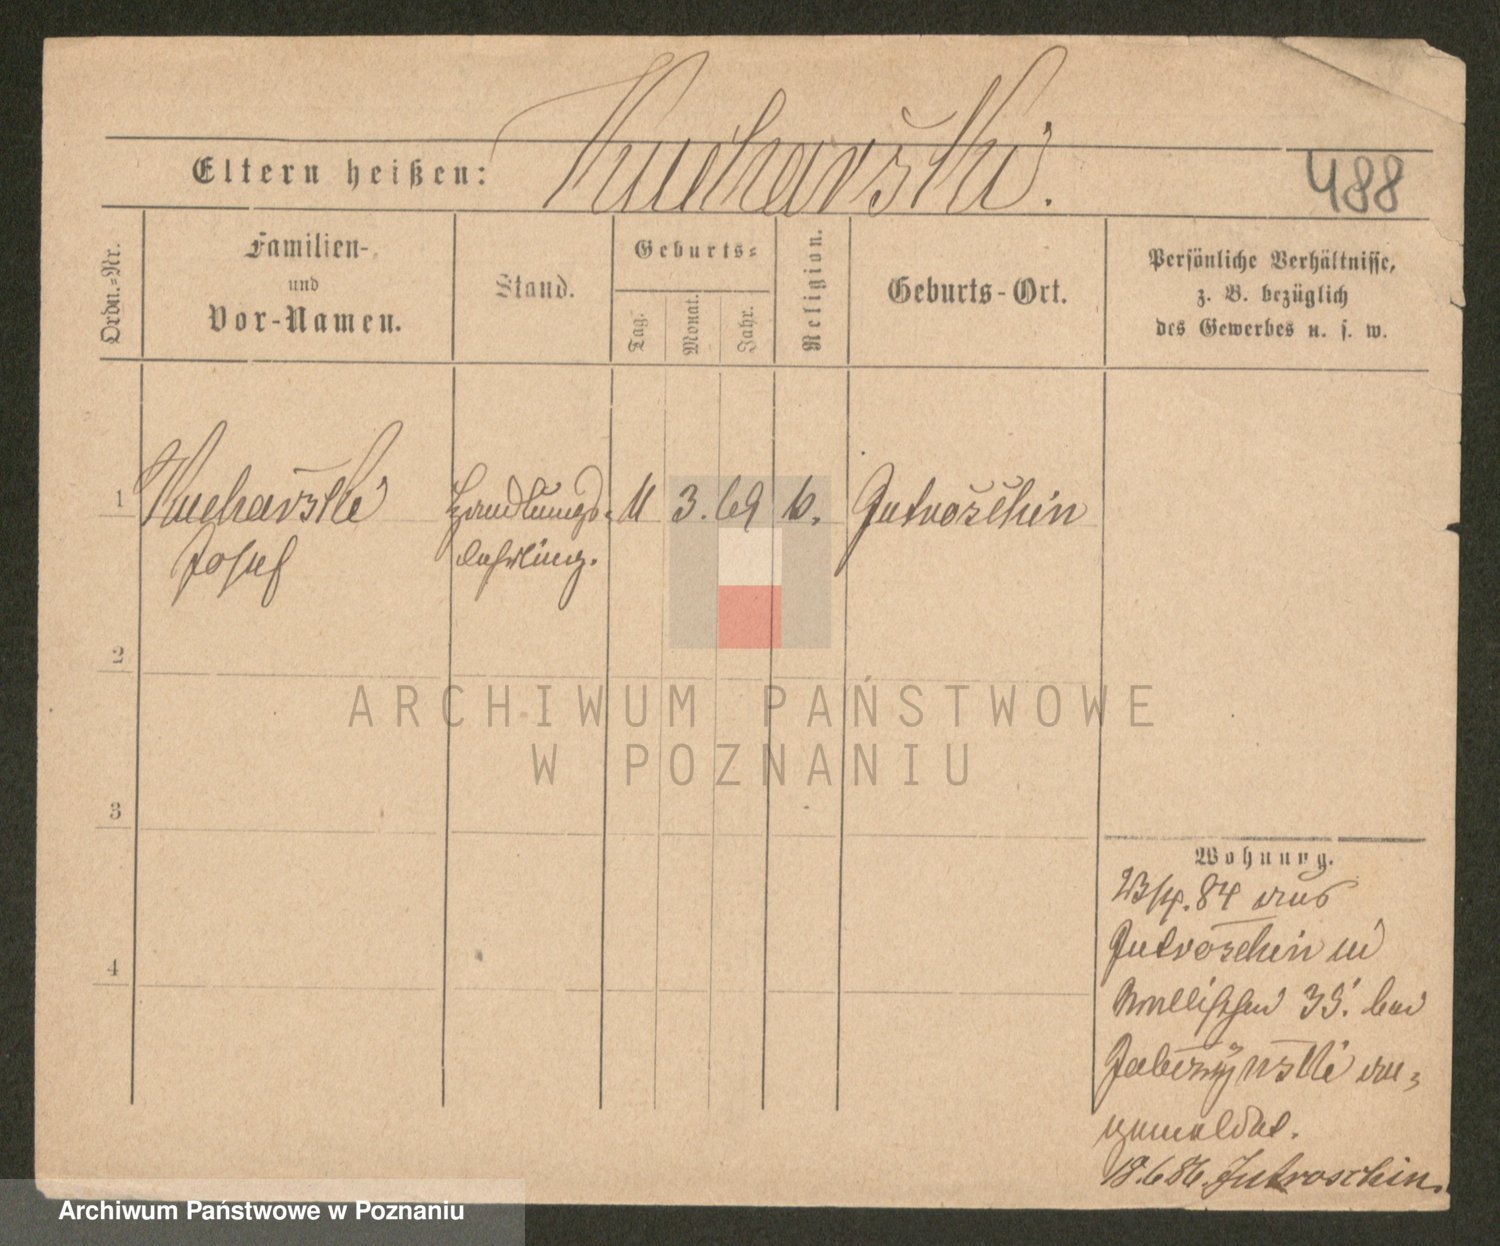 Eltern heißen: Kucharski. 488
Ordn.-Nr.
Familien-
und
Vor-Namen.
Stand.
Geburts-
Tag.
Monat.
Jahr.
Religion.
Geburts-Ort.
Persönliche Verhältnisse,
z. B. bezüglich
des Gewerbes u. s. w.
1 Kucharski Handlungs- 11 3. 69 k. Jutroschin
Josef lehrling.
2
3
4
Wohnung.
23/4. 84 aus
Jutroschin in
35. bei
an-
gemeldet.
18.6 86. Jutroschin.
ARCHIWUM PAŃSTWOWE
W POZNANIU
Archiwum Państwowe w Poznaniu